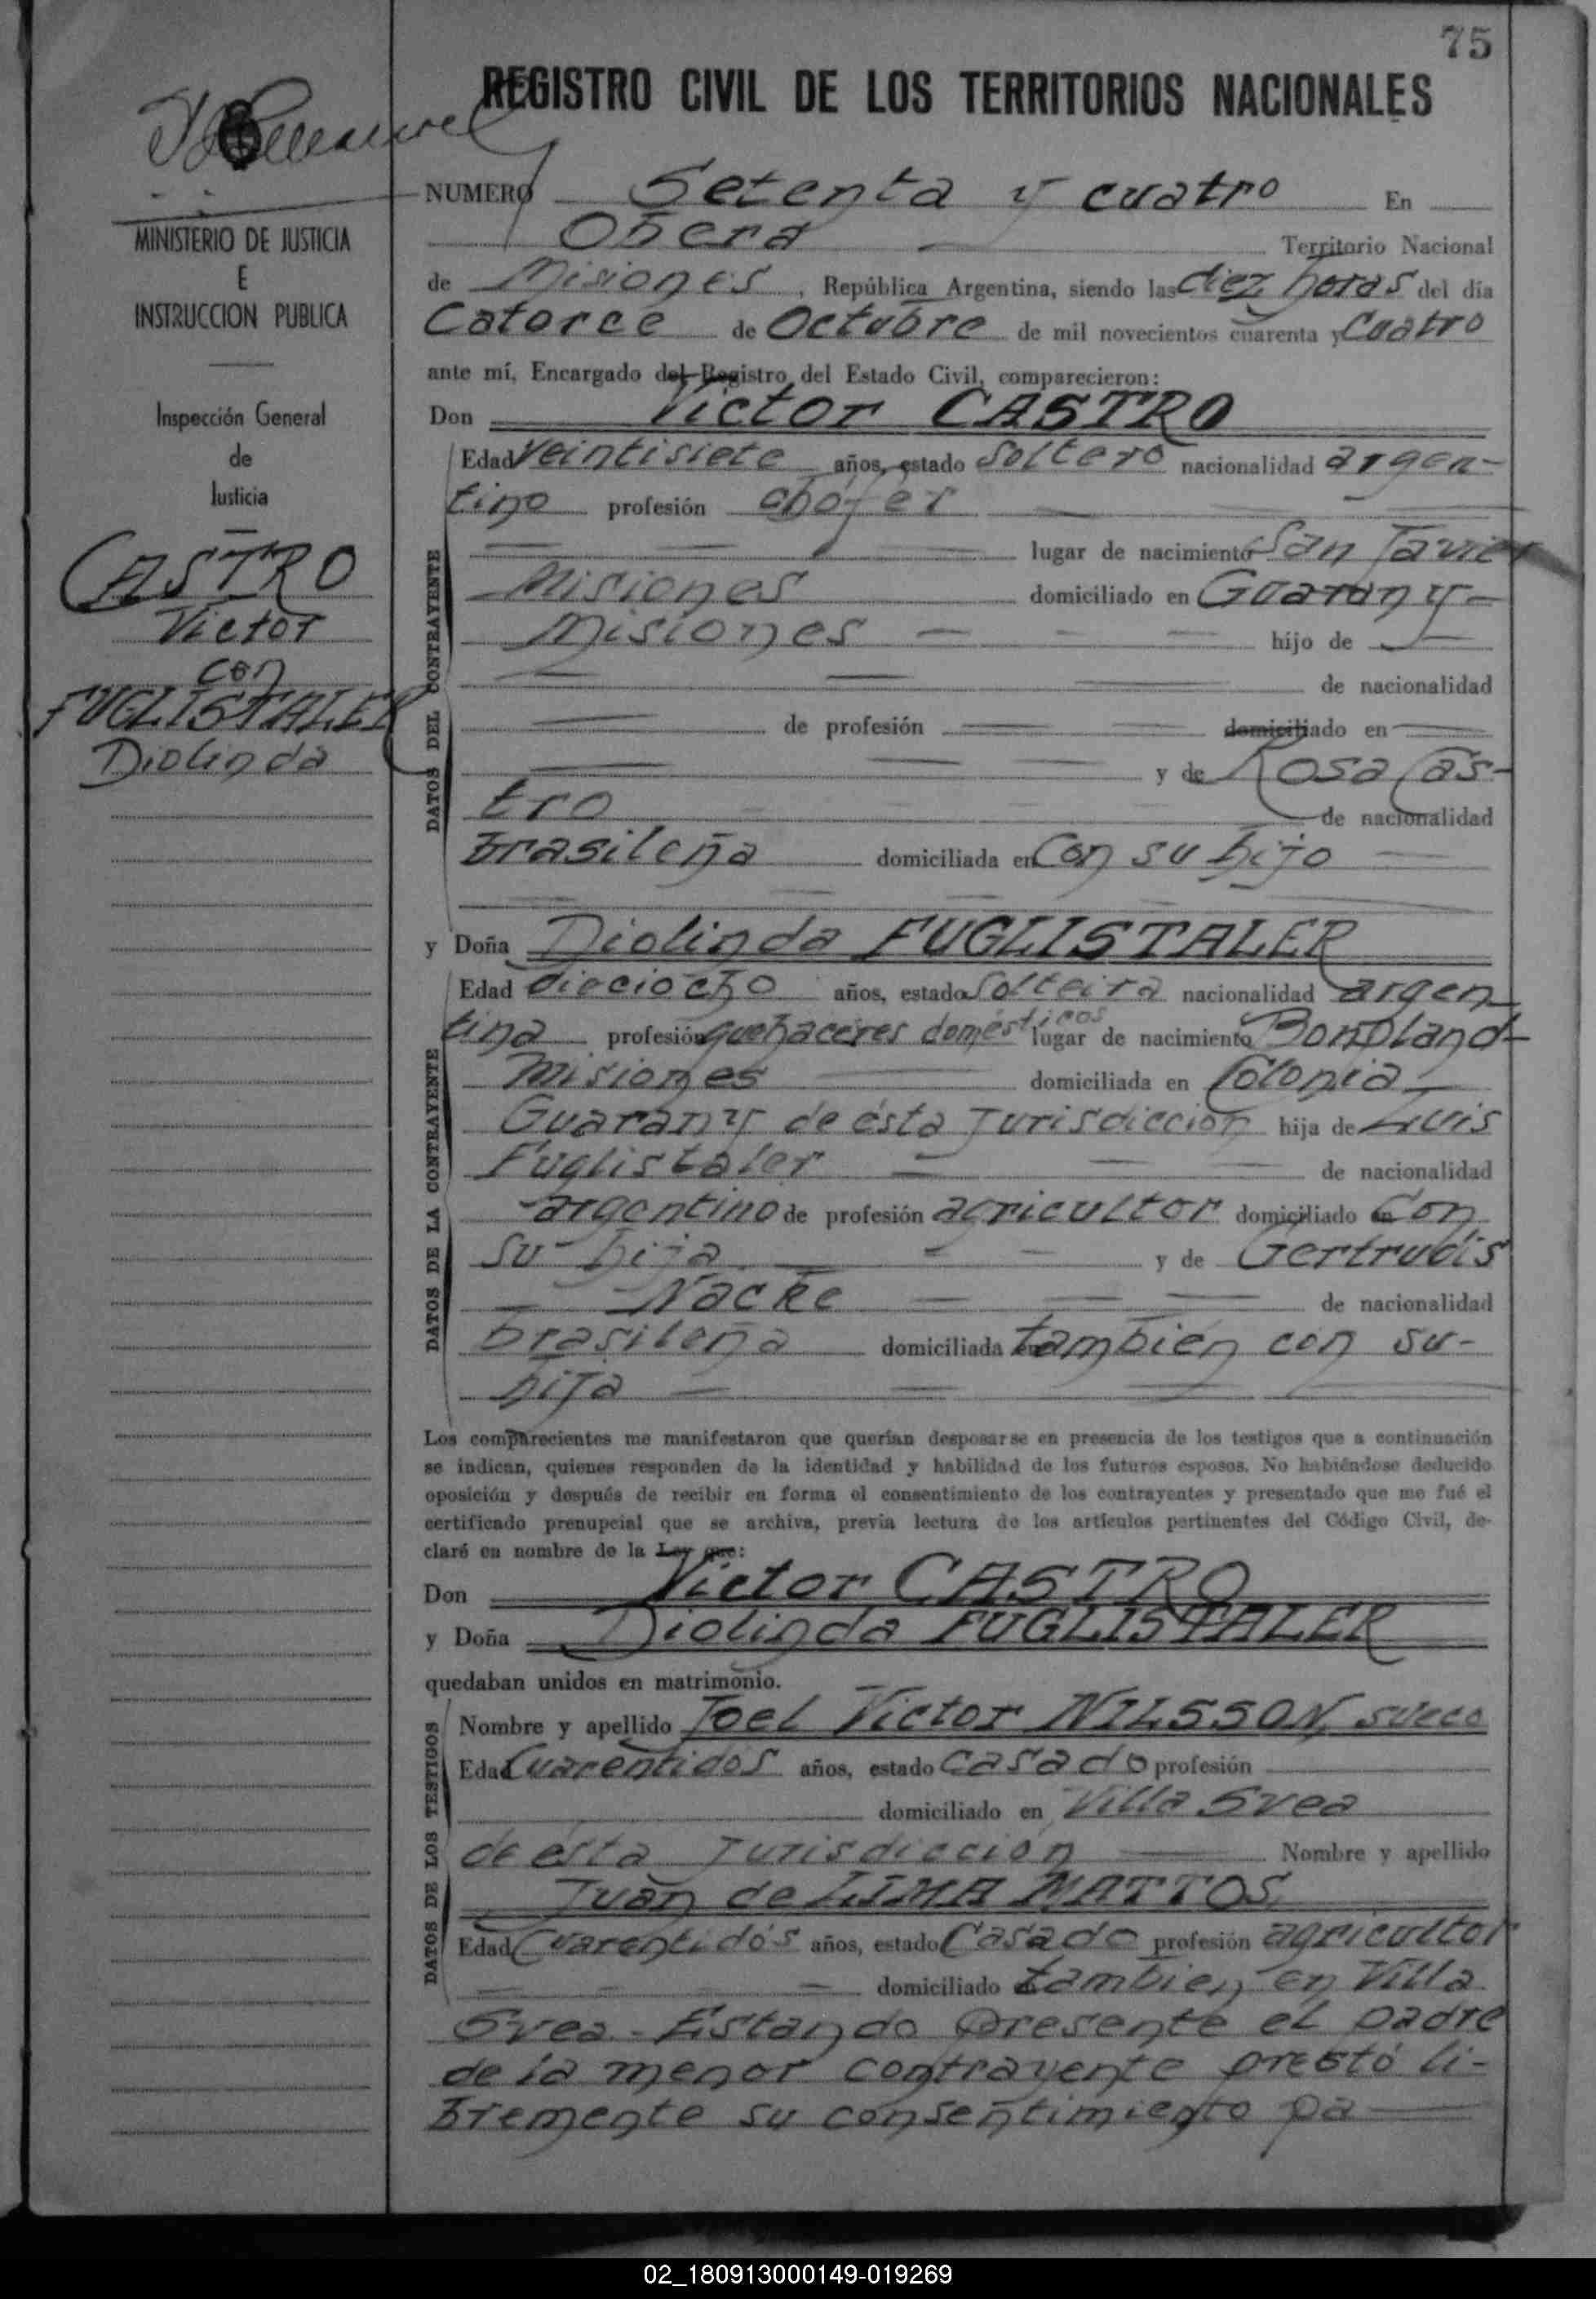 75
REGISTRO CIVIL DE LOS TERRITORIOS NACIONALES
NUMERO Setenta y cuatro En
Oberá Territorio Nacional
de Misiones, República Argentina, siendo las diez horas del día
Catorce de Octubre de mil novecientos cuarenta y Cuatro
ante mí, Encargado del Registro del Estado Civil, comparecieron:
Don Victor CASTRO
Edad veintisiete años, estado soltero nacionalidad argen-
tino profesión chofer
lugar de nacimiento San Javier
Misiones domiciliado en Guarany-
Misiones hijo de
de nacionalidad
de profesión domiciliado en
y de Rosa Cas-
tro de nacionalidad
brasileña domiciliada en Con su hijo
y Doña Diolinda FUGLISTALER
Edad dieciocho años, estado Solteira nacionalidad argen
tina profesión quehaceres domésticos lugar de nacimiento Bompland-
Misiones domiciliada en Colonia
Guarany de ésta Jurisdicción hija de Luis
Fuglistaler de nacionalidad
argentino de profesión agricultor domiciliado en Con
su hija y de Gertrudis
Nacke de nacionalidad
brasileña domiciliada en también con su-
hija
Los comparecientes me manifestaron que querían desposarse en presencia de los testigos que a continuación
se indican, quienes responden de la identidad y habilidad de los futuros esposos. No habiéndose deducido
oposición y después de recibir en forma el consentimiento de los contrayentes y presentado que me fué el
certificado prenupcial que se archiva, previa lectura de los artículos pertinentes del Código Civil, de-
claré en nombre de la Ley que:
Don Victor CASTRO
y Doña Diolinda FUGLISTALER
quedaban unidos en matrimonio.
Nombre y apellido Joel Victor NILSSON, sueco
Edad Cuarentidos años, estado casado profesión
domiciliado en Villa Svea
de ésta Jurisdicción Nombre y apellido
Juan de LIMA MATTOS
Edad Cuarentidós años, estado Casado profesión agricultor
domiciliado en tambien en Villa
Svea - Estando Presente el padre
de la menor contrayente prestó li-
bremente su consentimiento pa
MINISTERIO DE JUSTICIA
E
INSTRUCCION PUBLICA
Inspección General
de
Justicia
CASTRO
Victor
con
FUGLISTALER
Diolinda
DATOS DEL CONTRAYENTE
DATOS DE LA CONTRAYENTE
DATOS DE LOS TESTIGOS
02_180913000149-019269